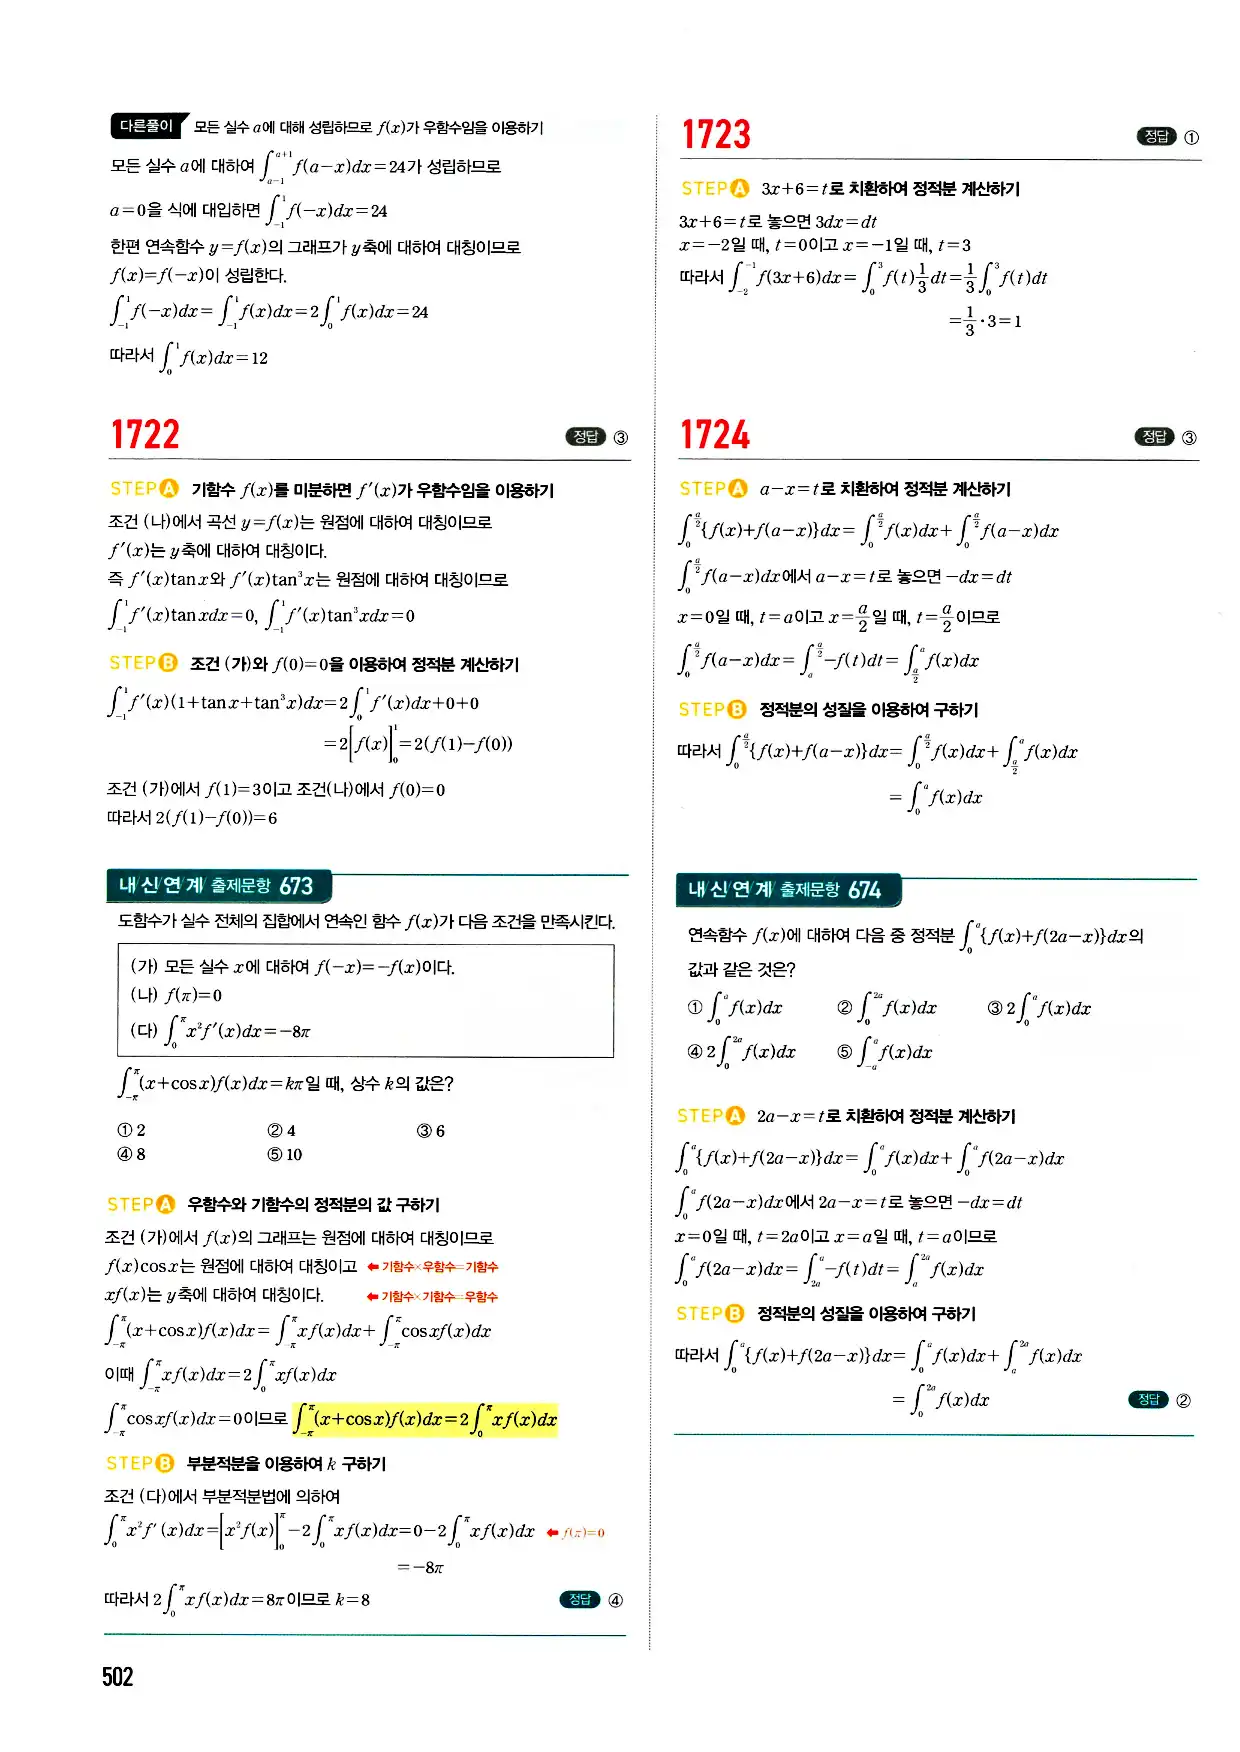 다른풀이 모든 실수 a에 대해 성립하므로 f(x)가 우함수임을 이용하기
모든 실수 a에 대하여 ∫_{a-1}^{a+1} f(a-x)dx=24가 성립하므로
a=0을 식에 대입하면 ∫_{-1}^{1} f(-x)dx=24
한편 연속함수 y=f(x)의 그래프가 y축에 대하여 대칭이므로
f(x)=f(-x)이 성립한다.
∫_{-1}^{1} f(-x)dx=∫_{-1}^{1} f(x)dx=2∫_{0}^{1} f(x)dx=24
따라서 ∫_{0}^{1} f(x)dx=12
1722 정답 ③
STEP A 기함수 f(x)를 미분하면 f'(x)가 우함수임을 이용하기
조건 (나)에서 곡선 y=f(x)는 원점에 대하여 대칭이므로
f'(x)는 y축에 대하여 대칭이다.
즉 f'(x)tanx와 f'(x)tan³x는 원점에 대하여 대칭이므로
∫_{-1}^{1} f'(x)tanxdx=0, ∫_{-1}^{1} f'(x)tan³xdx=0
STEP B 조건 (가)와 f(0)=0을 이용하여 정적분 계산하기
∫_{-1}^{1} f'(x)(1+tanx+tan³x)dx=2∫_{0}^{1} f'(x)dx+0+0
=2[f(x)]_{0}^{1}=2(f(1)-f(0))
조건 (가)에서 f(1)=3이고 조건(나)에서 f(0)=0
따라서 2(f(1)-f(0))=6
내/신/연/계/ 출제문항 673
도함수가 실수 전체의 집합에서 연속인 함수 f(x)가 다음 조건을 만족시킨다.
(가) 모든 실수 x에 대하여 f(-x)=-f(x)이다.
(나) f(π)=0
(다) ∫_{0}^{π} x²f'(x)dx=-8π
∫_{-π}^{π} (x+cosx)f(x)dx=kπ일 때, 상수 k의 값은?
① 2 ② 4 ③ 6
④ 8 ⑤ 10
STEP A 우함수와 기함수의 정적분의 값 구하기
조건 (가)에서 f(x)의 그래프는 원점에 대하여 대칭이므로
f(x)cosx는 원점에 대하여 대칭이고 ← 기함수×우함수=기함수
xf(x)는 y축에 대하여 대칭이다. ← 기함수×기함수=우함수
∫_{-π}^{π} (x+cosx)f(x)dx=∫_{-π}^{π} xf(x)dx+∫_{-π}^{π} cosxf(x)dx
이때 ∫_{-π}^{π} xf(x)dx=2∫_{0}^{π} xf(x)dx
∫_{-π}^{π} cosxf(x)dx=0이므로 ∫_{-π}^{π} (x+cosx)f(x)dx=2∫_{0}^{π} xf(x)dx
STEP B 부분적분을 이용하여 k 구하기
조건 (다)에서 부분적분법에 의하여
∫_{0}^{π} x²f'(x)dx=[x²f(x)]_{0}^{π}-2∫_{0}^{π} xf(x)dx=0-2∫_{0}^{π} xf(x)dx ← f(π)=0
=-8π
따라서 2∫_{0}^{π} xf(x)dx=8π이므로 k=8 정답 ④
502
1723 정답 ①
STEP A 3x+6=t로 치환하여 정적분 계산하기
3x+6=t로 놓으면 3dx=dt
x=-2일 때, t=0이고 x=-1일 때, t=3
따라서 ∫_{-2}^{-1} f(3x+6)dx=∫_{0}^{3} f(t)1/3dt=1/3∫_{0}^{3} f(t)dt
=1/3·3=1
1724 정답 ③
STEP A a-x=t로 치환하여 정적분 계산하기
∫_{0}^{a/2} {f(x)+f(a-x)}dx=∫_{0}^{a/2} f(x)dx+∫_{0}^{a/2} f(a-x)dx
∫_{0}^{a/2} f(a-x)dx에서 a-x=t로 놓으면 -dx=dt
x=0일 때, t=a이고 x=a/2일 때, t=a/2이므로
∫_{0}^{a/2} f(a-x)dx=∫_{a}^{a/2} -f(t)dt=∫_{a/2}^{a} f(x)dx
STEP B 정적분의 성질을 이용하여 구하기
따라서 ∫_{0}^{a/2} {f(x)+f(a-x)}dx=∫_{0}^{a/2} f(x)dx+∫_{a/2}^{a} f(x)dx
=∫_{0}^{a} f(x)dx
내/신/연/계/ 출제문항 674
연속함수 f(x)에 대하여 다음 중 정적분 ∫_{0}^{a} {f(x)+f(2a-x)}dx의
값과 같은 것은?
① ∫_{0}^{a} f(x)dx ② ∫_{0}^{2a} f(x)dx ③ 2∫_{0}^{a} f(x)dx
④ 2∫_{0}^{2a} f(x)dx ⑤ ∫_{-a}^{a} f(x)dx
STEP A 2a-x=t로 치환하여 정적분 계산하기
∫_{0}^{a} {f(x)+f(2a-x)}dx=∫_{0}^{a} f(x)dx+∫_{0}^{a} f(2a-x)dx
∫_{0}^{a} f(2a-x)dx에서 2a-x=t로 놓으면 -dx=dt
x=0일 때, t=2a이고 x=a일 때, t=a이므로
∫_{0}^{a} f(2a-x)dx=∫_{2a}^{a} -f(t)dt=∫_{a}^{2a} f(x)dx
STEP B 정적분의 성질을 이용하여 구하기
따라서 ∫_{0}^{a} {f(x)+f(2a-x)}dx=∫_{0}^{a} f(x)dx+∫_{a}^{2a} f(x)dx
=∫_{0}^{2a} f(x)dx 정답 ②